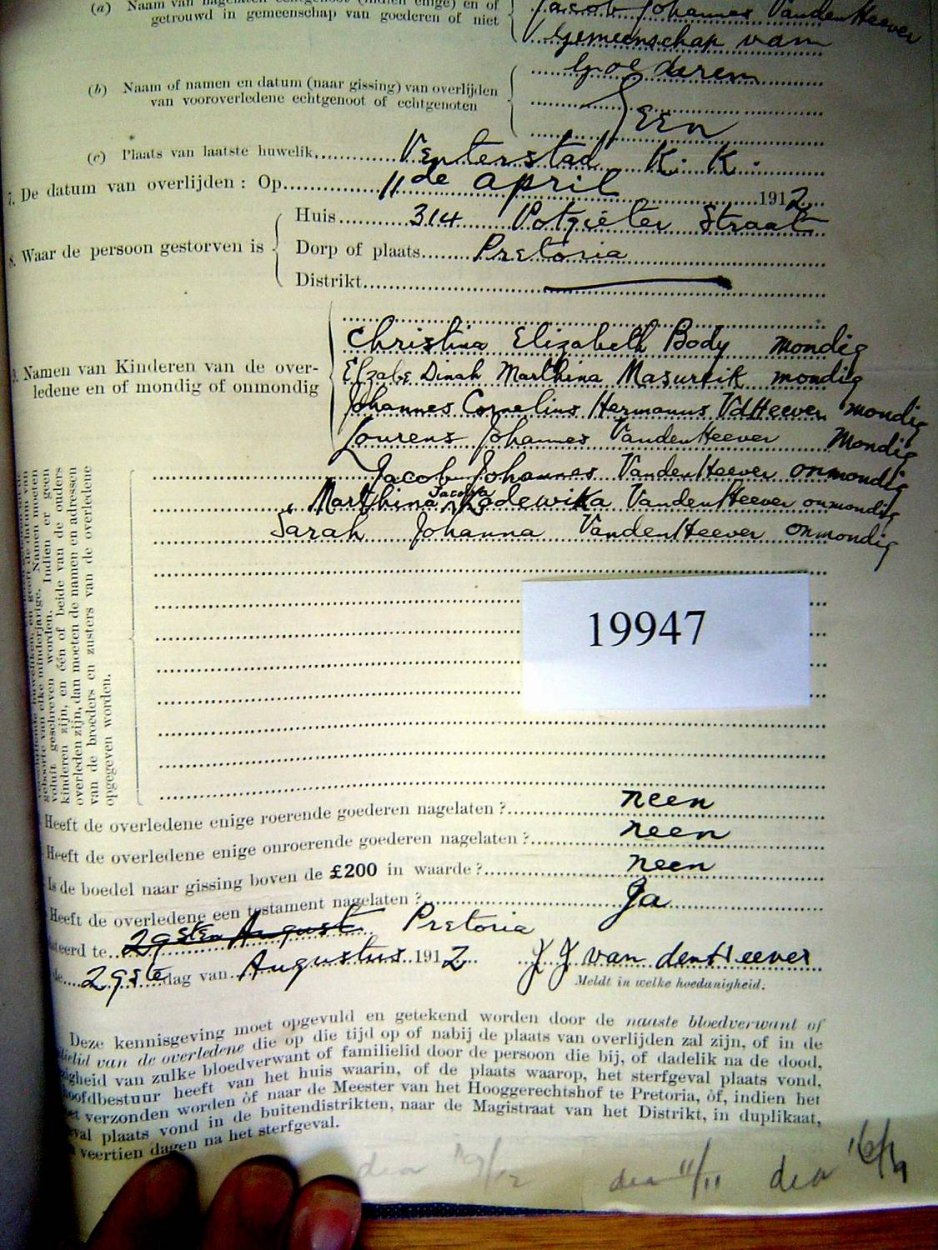 (a) Naam van nagelaten echtgenoot (indien enige) en of
getrouwd in gemeenschap van goederen of niet
Jacob Johannes VandenHeever
Gemeenschap vam
Goederem
(b) Naam of namen en datum (naar gissing) van overlijden
van vooroverledene echtgenoot of echtgenoten
Geen
(c) Plaats van laatste huwelik Venterstad K. K.
7. De datum van overlijden: Op 11de april 1912
8. Waar de persoon gestorven is
Huis 314 Potgieter Straat
Dorp of plaats Pretoria
Distrikt
Namen van Kinderen van de over-
ledene en of mondig of onmondig
Christina Elizabeth Body mondig
Elzabe Dinah Marthina Masurtik mondig
Johannes Cornelius Hermanus VdHeever mondig
Lourens Johannes VandenHeever Mondig
Jacob Johannes VandenHeever onmondig
Marthina Jacoba Lodewika VandenHeever onmondig
Sarah Johanna VandenHeever onmondig
geboorte van elke minderjarige. Namen moeten
voluit geschreven worden. Indien er geen
kinderen zijn, en één of beide van de ouders
overleden zijn, dan moeten de namen en adressen
van de broeders en zusters van de overledene
opgegeven worden.
19947
Heeft de overledene enige roerende goederen nagelaten? neen
Heeft de overledene enige onroerende goederen nagelaten? neen
Is de boedel naar gissing boven de £200 in waarde? neen
Heeft de overledene een testament nagelaten? Ja
teerd te 29sten August Pretoria
29ste dag van Augustus 1912 J J van denHeever
Meldt in welke hoedanigheid.
Deze kennisgeving moet opgevuld en getekend worden door de naaste bloedverwant of
lielid van de overledene die op die tijd op of nabij de plaats van overlijden zal zijn, of in de
igheid van zulke bloedverwant of familielid door de persoon die bij, of dadelik na de dood,
oofdbestuur heeft van het huis waarin, of de plaats waarop, het sterfgeval plaats vond.
et verzonden worden óf naar de Meester van het Hooggerechtshof te Pretoria, óf, indien het
val plaats vond in de buitendistrikten, naar de Magistraat van het Distrikt, in duplikaat,
veertien dagen na het sterfgeval.